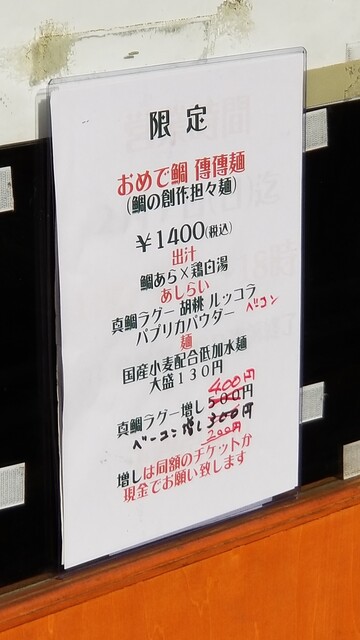 限定
おめで鯛 傳傳麺
(鯛の創作担々麺)
¥1400(税込)
出汁
鯛あら×鶏白湯
あしらい
真鯛ラグー 胡桃 ルッコラ
パプリカパウダー ベーコン
麺
国産小麦配合低加水麺
大盛130円
400円
真鯛ラグー増し500円
ベーコン増し300円
200円
増しは同額のチケットか
現金でお願い致します